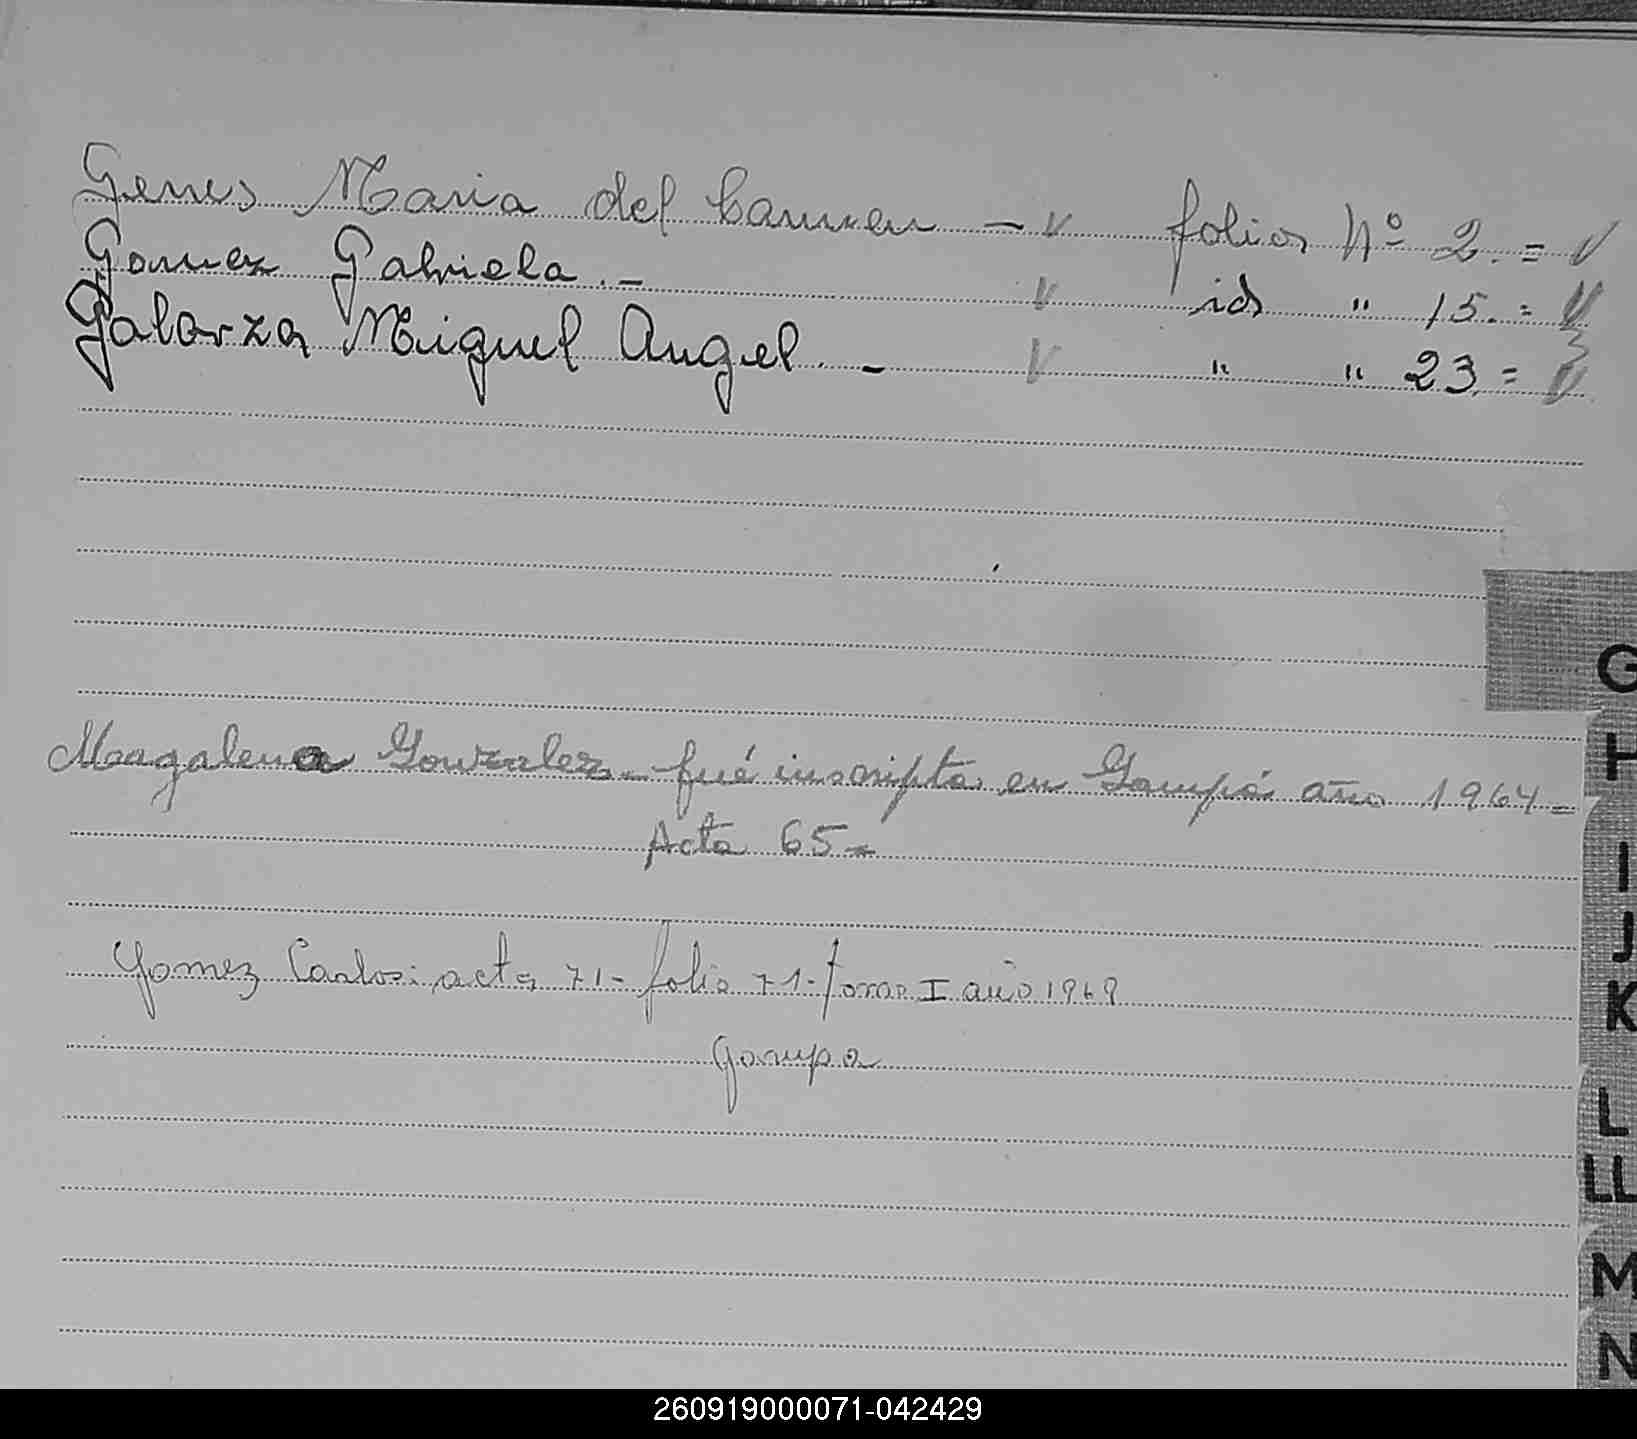 Genes Maria del Carmen - v folios Nº 2. = v
Gomez Gabriela. - v id " 15. = v
Galarza Miguel Angel. - v " " 23. = v
G
H
Magalena Gonzalez - fué inscripta en Garupá año 1964 =
Acta 65 =
I
J
Gomez Carlos: acta 71 - folio 71 - tomo I año 1969
K
Garupa
L
LL
M
N
260919000071-042429